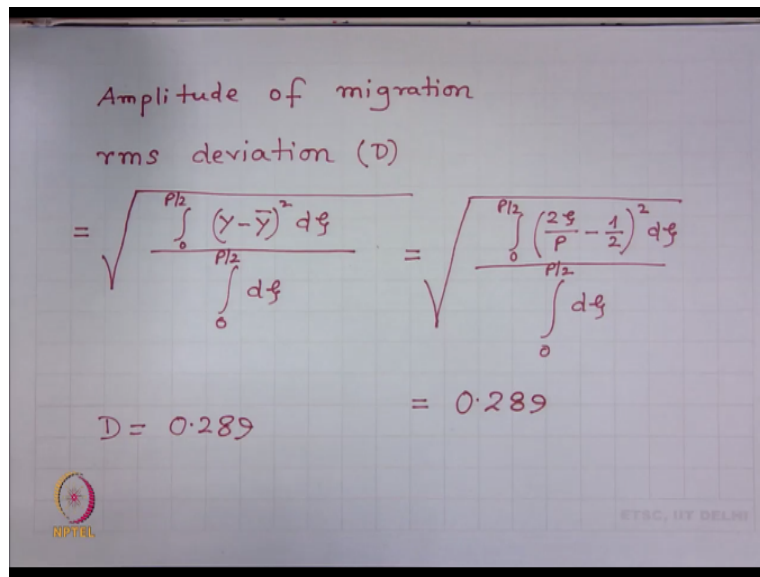 Amplitude of migration
rms deviation (D)
= √( ∫₀^{P/2} (Y-Y̅)² dξ / ∫₀^{P/2} dξ ) = √( ∫₀^{P/2} (2ξ/P - 1/2)² dξ / ∫₀^{P/2} dξ )
= 0.289
D = 0.289
NPTEL
ETSC, IIT DELHI